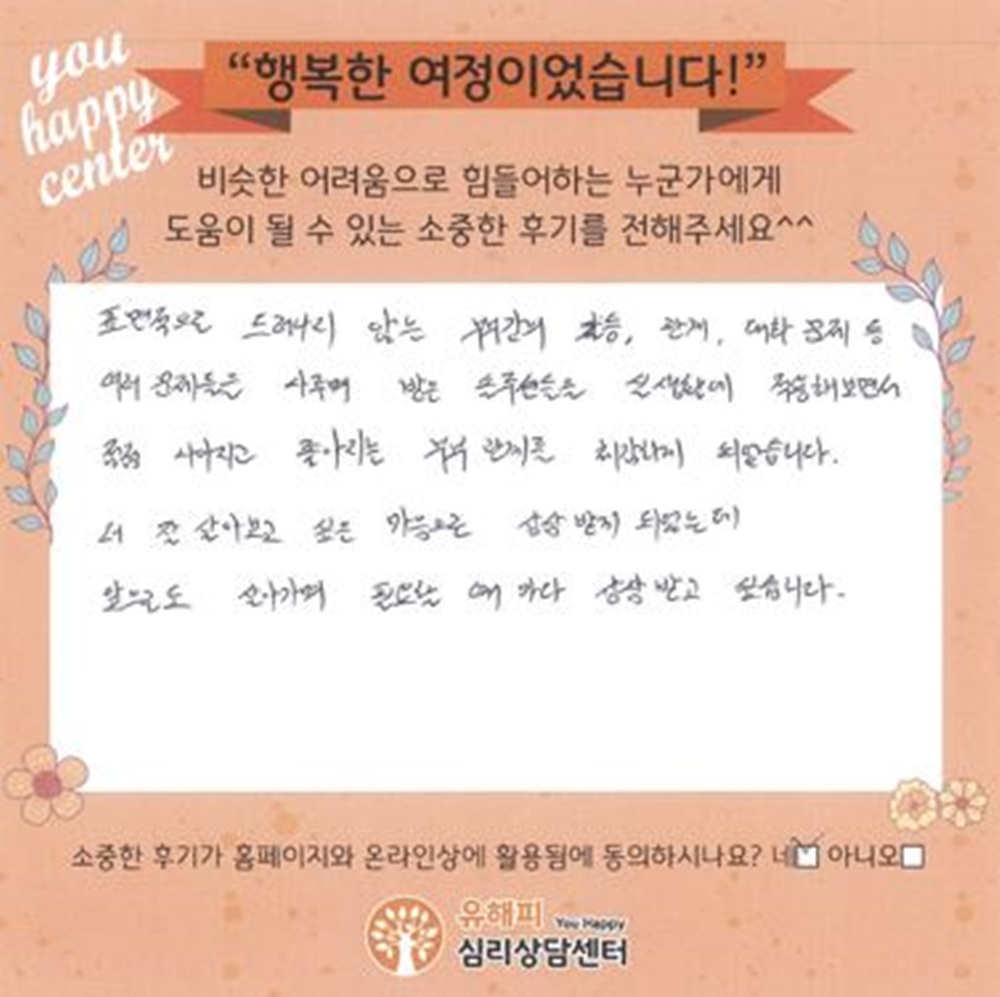 you
happy
center
“행복한 여정이었습니다!”
비슷한 어려움으로 힘들어하는 누군가에게
도움이 될 수 있는 소중한 후기를 전해주세요^^
표면적으로 드러나지 않는 부부간의 갈등, 관계, 대화 문제 등
여러 문제들을 다루며 받은 솔루션들을 실생활에 적용해보면서
점점 나아지고 좋아지는 부부 관계를 체감하게 되었습니다.
더 잘 살아보고 싶은 마음으로 상담 받게 되었는데
앞으로도 살아가며 필요할 때 마다 상담 받고 싶습니다.
소중한 후기가 홈페이지와 온라인상에 활용됨에 동의하시나요? 네 아니오
유해피 You Happy
심리상담센터